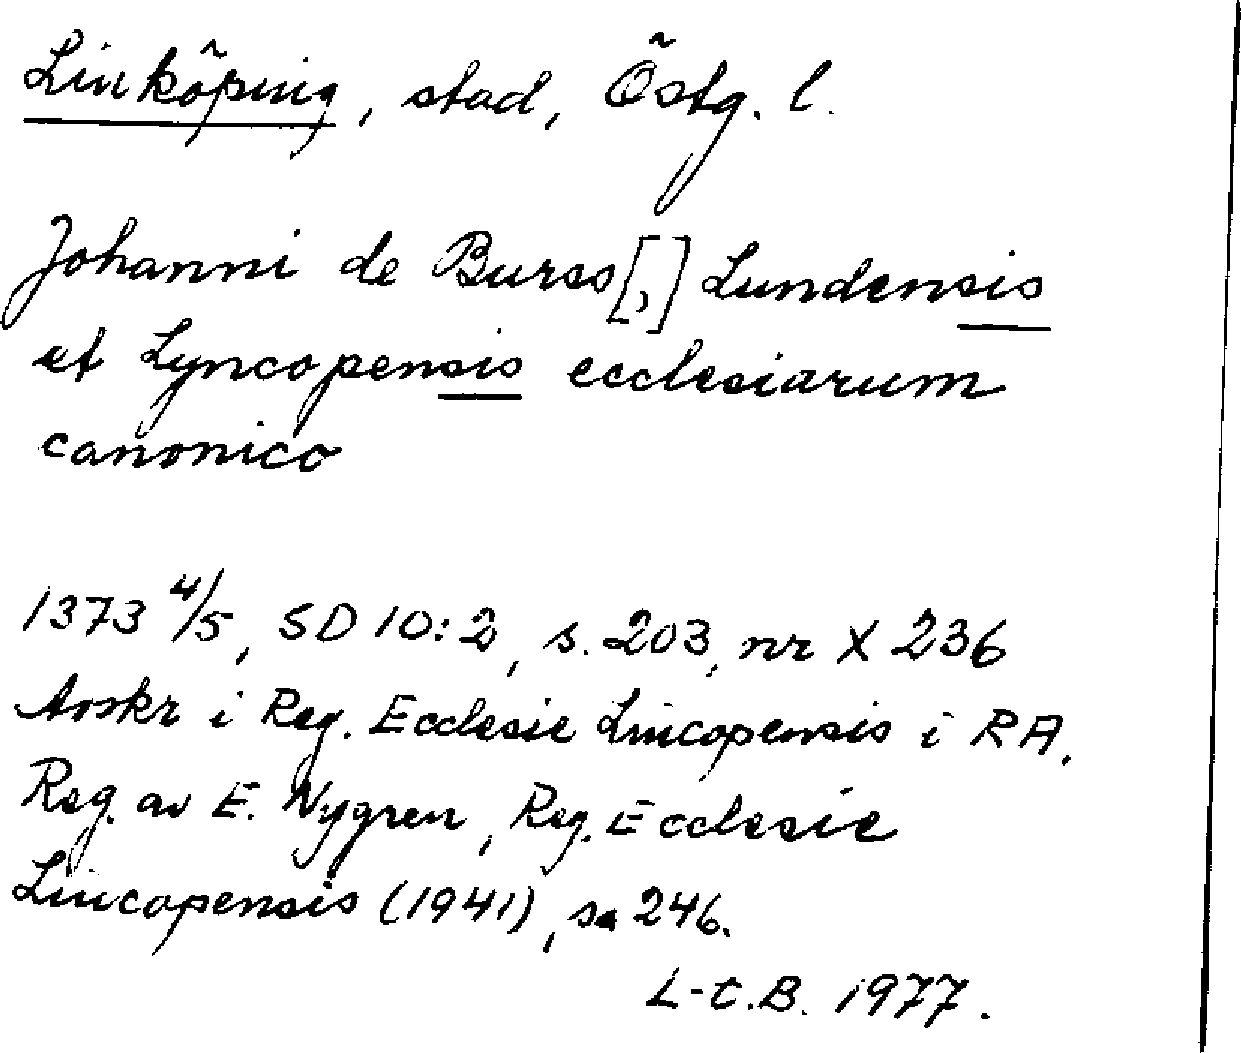 Linköping, stad, Östg. l.
Johanni de Burss[,] Lundensis
et Lyncopensis ecclesiarum
canonico
1373 4/5, SD 10:2, s. 203, nr X 236
Avskr i Reg. Ecclesie Lincopensis i RA.
Reg. av E. Nygren, Reg. Ecclesie
Lincopensis (1941), s. 246.
L-C.B. 1977.